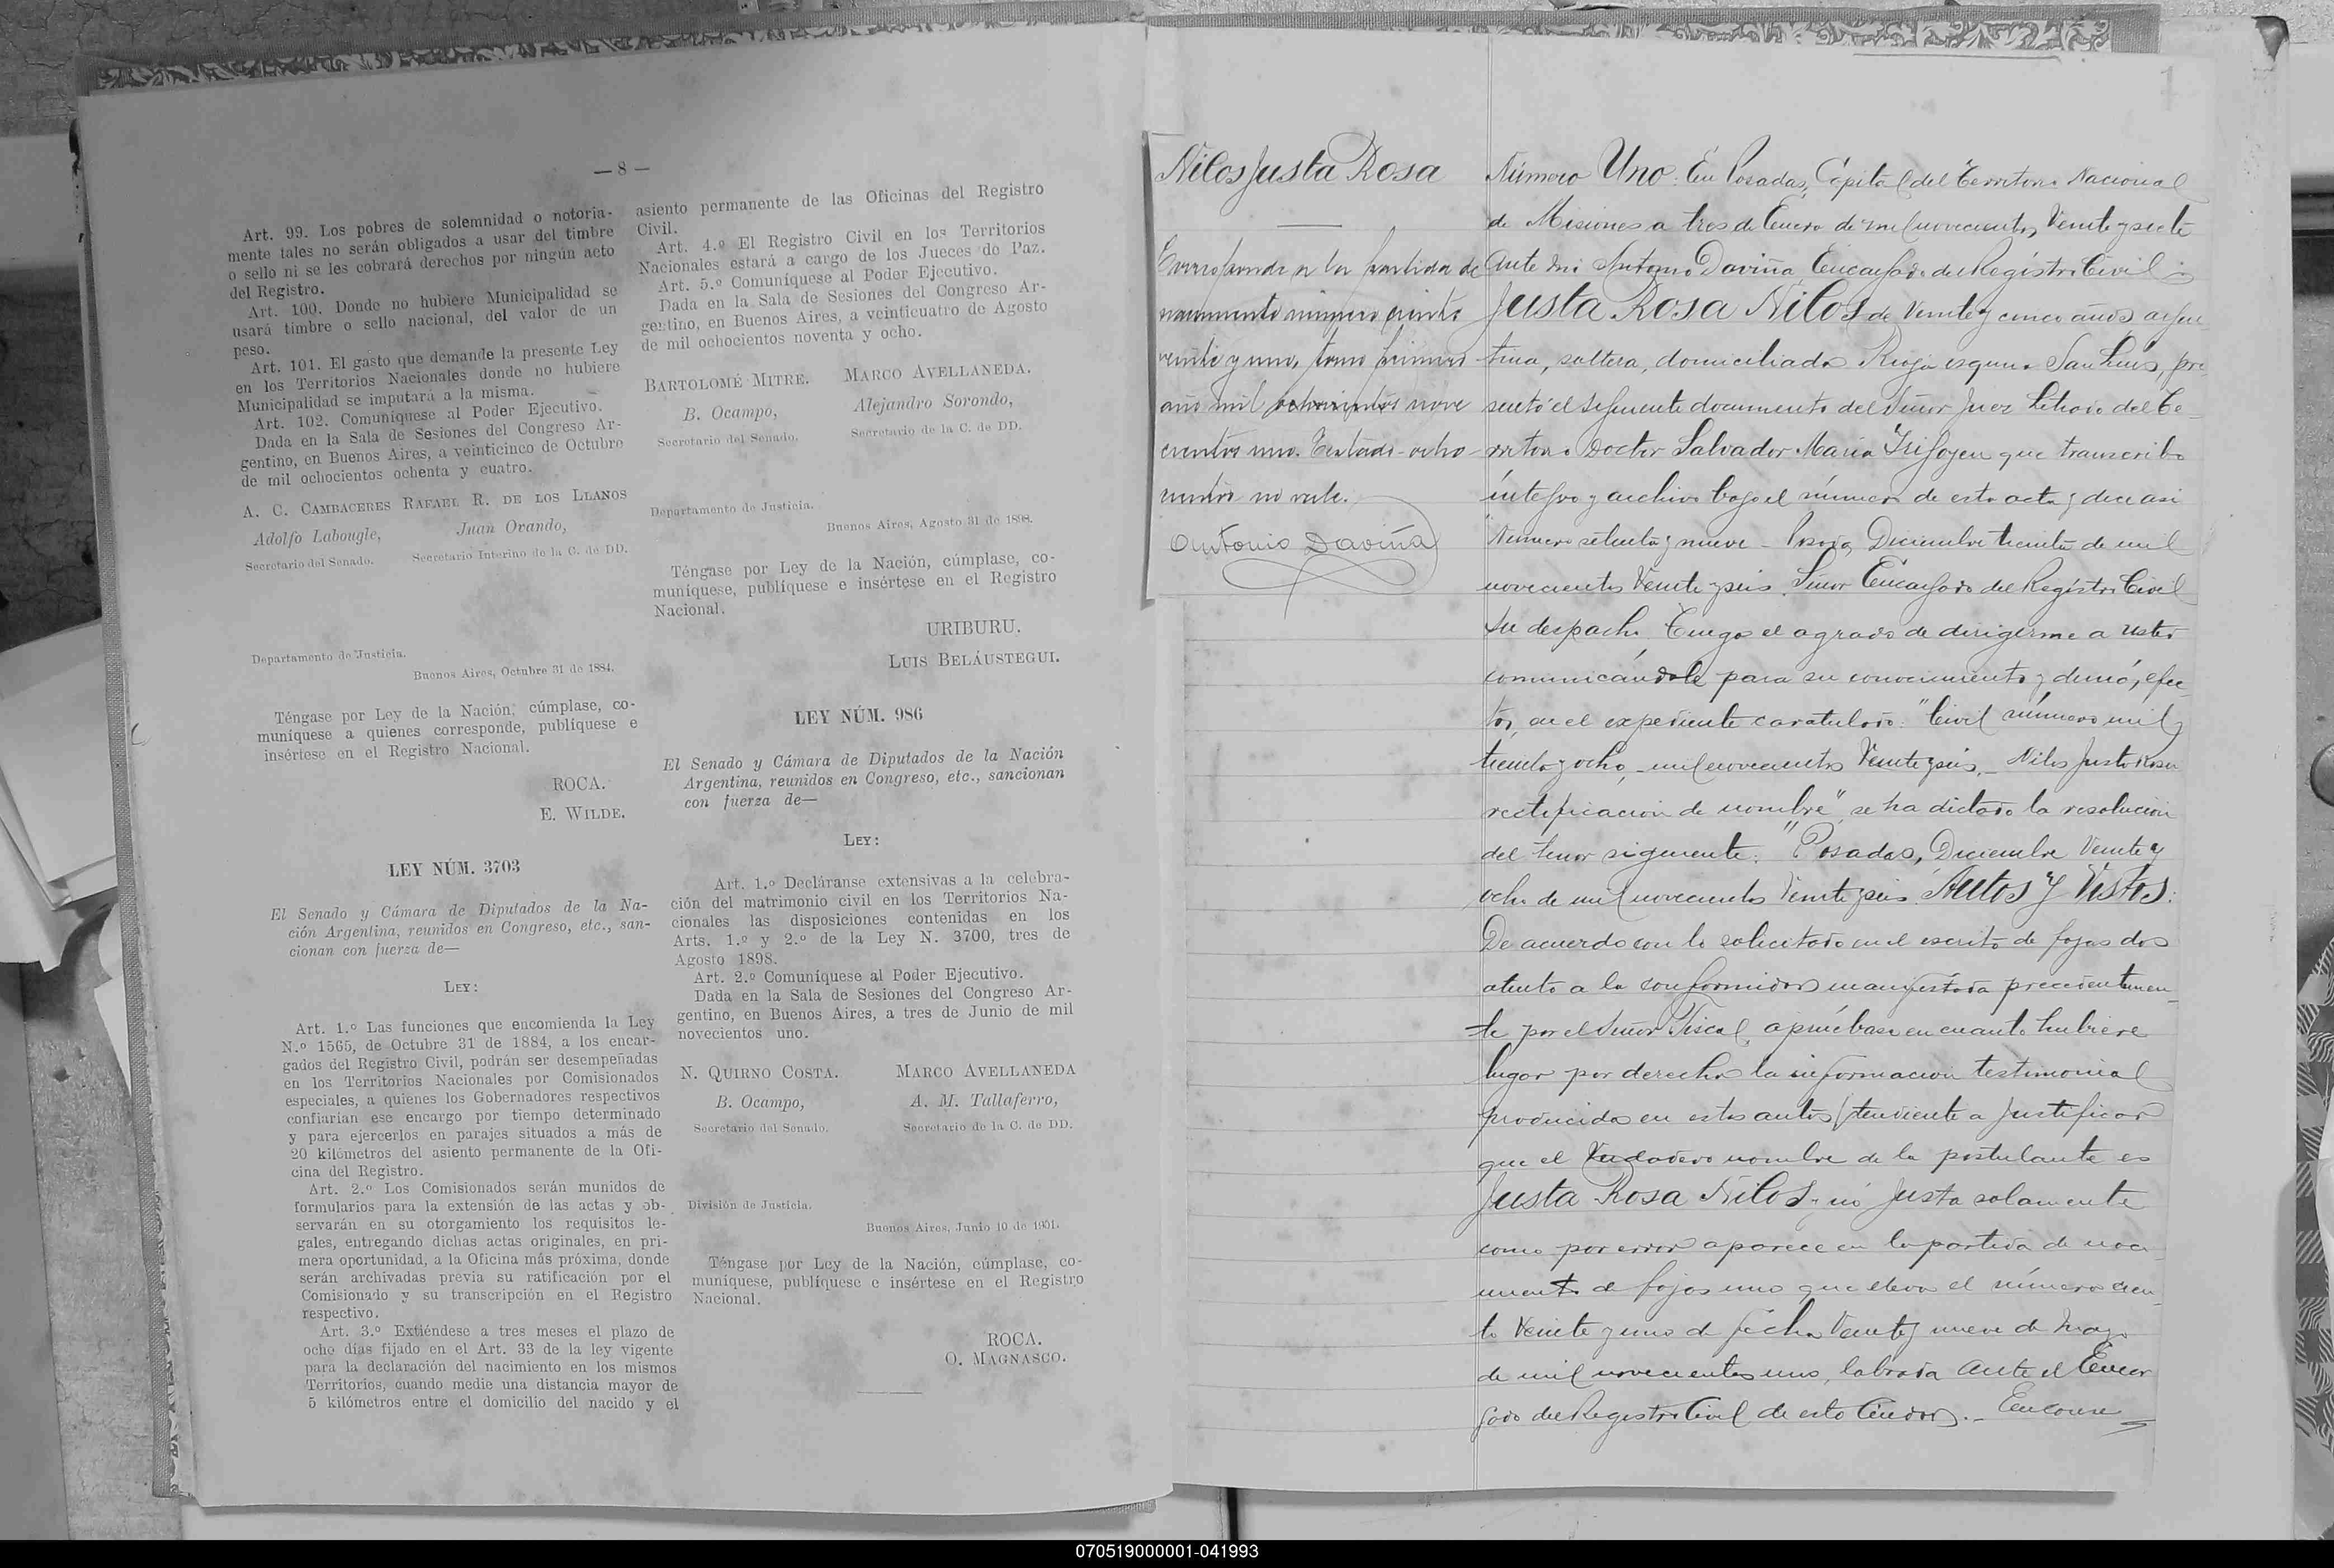 — 8 —
Art. 99. Los pobres de solemnidad o notoria-
mente tales no serán obligados a usar del timbre
o sello ni se les cobrará derechos por ningún acto
del Registro.
Art. 100. Donde no hubiere Municipalidad se
usará timbre o sello nacional, del valor de un
peso.
Art. 101. El gasto que demande la presente Ley
en los Territorios Nacionales donde no hubiere
Municipalidad se imputará a la misma.
Art. 102. Comuníquese al Poder Ejecutivo.
Dada en la Sala de Sesiones del Congreso Ar-
gentino, en Buenos Aires, a veinticinco de Octubre
de mil ochocientos ochenta y cuatro.
A. C. CAMBACERES RAFAEL R. DE LOS LLANOS
Adolfo Labougle, Juan Orando,
Secretario del Senado. Secretario Interino de la C. de DD.
Departamento de Justicia.
Buenos Aires, Octubre 31 de 1884.
Téngase por Ley de la Nación, cúmplase, co-
muníquese a quienes corresponde, publíquese e
insértese en el Registro Nacional.
ROCA.
E. WILDE.
LEY NÚM. 3703
El Senado y Cámara de Diputados de la Na-
ción Argentina, reunidos en Congreso, etc., san-
cionan con fuerza de—
LEY:
Art. 1.º Las funciones que encomienda la Ley
N.º 1565, de Octubre 31 de 1884, a los encar-
gados del Registro Civil, podrán ser desempeñadas
en los Territorios Nacionales por Comisionados
especiales, a quienes los Gobernadores respectivos
confiarían ese encargo por tiempo determinado
y para ejercerlos en parajes situados a más de
20 kilómetros del asiento permanente de la Ofi-
cina del Registro.
Art. 2.º Los Comisionados serán munidos de
formularios para la extensión de las actas y ob-
servarán en su otorgamiento los requisitos le-
gales, entregando dichas actas originales, en pri-
mera oportunidad, a la Oficina más próxima, donde
serán archivadas previa su ratificación por el
Comisionado y su transcripción en el Registro
respectivo.
Art. 3.º Extiéndese a tres meses el plazo de
ocho días fijado en el Art. 33 de la ley vigente
para la declaración del nacimiento en los mismos
Territorios, cuando medie una distancia mayor de
5 kilómetros entre el domicilio del nacido y el
asiento permanente de las Oficinas del Registro
Civil.
Art. 4.º El Registro Civil en los Territorios
Nacionales estará a cargo de los Jueces de Paz.
Art. 5.º Comuníquese al Poder Ejecutivo.
Dada en la Sala de Sesiones del Congreso Ar-
gentino, en Buenos Aires, a veinticuatro de Agosto
de mil ochocientos noventa y ocho.
BARTOLOMÉ MITRE. MARCO AVELLANEDA.
B. Ocampo, Alejandro Sorondo,
Secretario del Senado. Secretario de la C. de DD.
Departamento de Justicia.
Buenos Aires, Agosto 31 de 1898.
Téngase por Ley de la Nación, cúmplase, co-
muníquese, publíquese e insértese en el Registro
Nacional.
URIBURU.
LUIS BELÁUSTEGUI.
LEY NÚM. 986
El Senado y Cámara de Diputados de la Nación
Argentina, reunidos en Congreso, etc., sancionan
con fuerza de—
LEY:
Art. 1.º Decláranse extensivas a la celebra-
ción del matrimonio civil en los Territorios Na-
cionales las disposiciones contenidas en los
Arts. 1.º y 2.º de la Ley N. 3700, tres de
Agosto 1898.
Art. 2.º Comuníquese al Poder Ejecutivo.
Dada en la Sala de Sesiones del Congreso Ar-
gentino, en Buenos Aires, a tres de Junio de mil
novecientos uno.
N. QUIRNO COSTA. MARCO AVELLANEDA
B. Ocampo, A. M. Tallaferro,
Secretario del Senado. Secretario de la C. de DD.
División de Justicia.
Buenos Aires, Junio 10 de 1901.
Téngase por Ley de la Nación, cúmplase, co-
muníquese, publíquese e insértese en el Registro
Nacional.
ROCA.
O. MAGNASCO.
1
Nilos Justa Rosa
Corresponde a la partida de
nacimiento número ciento
veinte y uno, tomo primero
año mil ochocientos nove
cientos uno. Testado - ocho
cientos no vale.
Antonio Daviña
Número Uno. En Posadas, Capital del Territorio Nacional
de Misiones a tres de Enero de mil novecientos Veinte y siete
ante mi Antonio Daviña Encargado del Registro Civil
Justa Rosa Nilos de Veinte y cinco años argen
tina, soltera, domiciliada Rioja esquina San Luis, pre
sentó el siguiente documento del Señor Juez Letrado del Te-
rritorio Doctor Salvador María Irigoyen que transcribo
íntegro y archivo bajo el número de esta acta y dice asi
"Número setenta y nueve - Posadas, Diciembre treinta de mil
novecientos Veinte y seis. Señor Encargado del Registro Civil
Su despacho. Tengo el agrado de dirigirme a usted
comunicándole para su conocimiento y demás efec-
tos, en el expediente caratulado: "Civil número mil
treinta y ocho - mil novecientos Veinte y seis - Nilos Justa Rosa
rectificación de nombre", se ha dictado la resolución
del tenor siguiente: "Posadas, Diciembre Veinte y
ocho de mil novecientos Veinte y seis. Autos y Vistos:
De acuerdo con lo solicitado en el escrito de fojas dos
atento a la conformidad manifestada precedentemen-
te por el Señor Fiscal, apruébase en cuanto hubiere
lugar por derecho la información testimonial
producida en estos autos tendiente a justificar
que el Verdadero nombre de la postulante es
Justa Rosa Nilos y nó Justa solamente
como por error aparece en la partida de naci-
miento de fojas uno que lleva el número cien-
to Veinte y uno de fecha Veinte y nueve de Mayo
de mil novecientos uno, labrada ante el Encar
gado del Registro Civil de esta Ciudad. - En conse
070519000001-041993